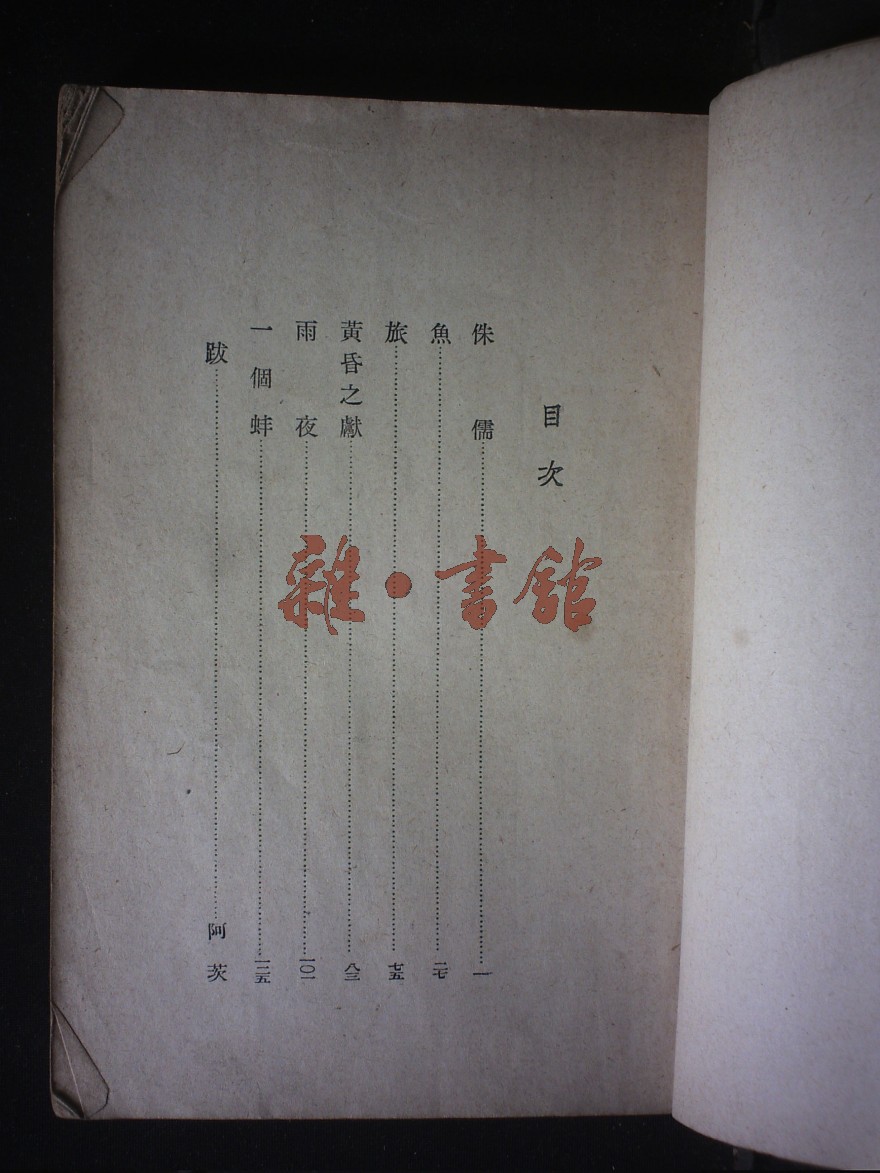 目次
侏儒……一
魚……二七
旅……七五
黃昏之獻……八三
雨夜……一〇一
一個蚌……一二五
跋……阿茨
雜•書館